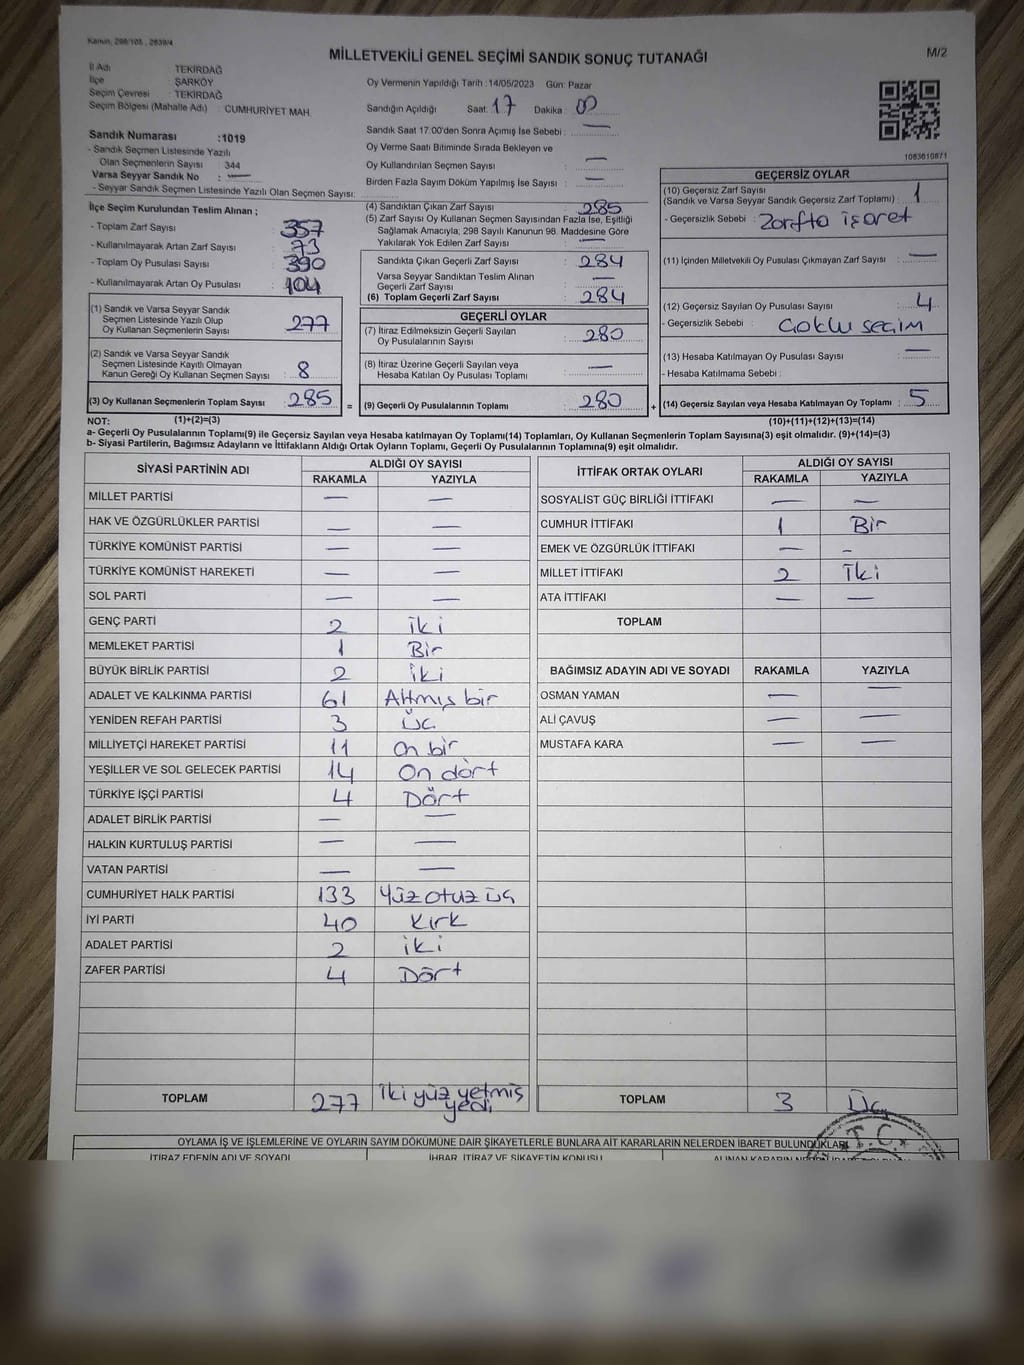 Kanun, 298/105 , 2839/4
MİLLETVEKİLİ GENEL SEÇİMİ SANDIK SONUÇ TUTANAĞI
M/2
İl Adı : TEKİRDAĞ
İlçe : ŞARKÖY
Seçim Çevresi : TEKİRDAĞ
Seçim Bölgesi (Mahalle Adı) : CUMHURİYET MAH.
Sandık Numarası :1019
- Sandık Seçmen Listesinde Yazılı
Olan Seçmenlerin Sayısı : 344
Varsa Seyyar Sandık No : —
- Seyyar Sandık Seçmen Listesinde Yazılı Olan Seçmen Sayısı:
Oy Vermenin Yapıldığı Tarih :14/05/2023 Gün: Pazar
Sandığın Açıldığı Saat: 17 Dakika : 00
Sandık Saat 17:00'den Sonra Açımış İse Sebebi : —
Oy Verme Saati Bitiminde Sırada Bekleyen ve
Oy Kullandırılan Seçmen Sayısı : —
Birden Fazla Sayım Döküm Yapılmış İse Sayısı : —
1083610871
İlçe Seçim Kurulundan Teslim Alınan ;
- Toplam Zarf Sayısı : 357
- Kullanılmayarak Artan Zarf Sayısı : 73
- Toplam Oy Pusulası Sayısı : 390
- Kullanılmayarak Artan Oy Pusulası : 104
(1) Sandık ve Varsa Seyyar Sandık
Seçmen Listesinde Yazılı Olup
Oy Kullanan Seçmenlerin Sayısı : 277
(2) Sandık ve Varsa Seyyar Sandık
Seçmen Listesinde Kayıtlı Olmayan
Kanun Gereği Oy Kullanan Seçmen Sayısı : 8
(3) Oy Kullanan Seçmenlerin Toplam Sayısı : 285 =
(4) Sandıktan Çıkan Zarf Sayısı : 285
(5) Zarf Sayısı Oy Kullanan Seçmen Sayısından Fazla İse, Eşitliği
Sağlamak Amacıyla; 298 Sayılı Kanunun 98. Maddesine Göre
Yakılarak Yok Edilen Zarf Sayısı : —
Sandıkta Çıkan Geçerli Zarf Sayısı : 284
Varsa Seyyar Sandıktan Teslim Alınan
Geçerli Zarf Sayısı : —
(6) Toplam Geçerli Zarf Sayısı : 284
GEÇERLİ OYLAR
(7) İtiraz Edilmeksizin Geçerli Sayılan
Oy Pusulalarının Sayısı : 280
(8) İtiraz Üzerine Geçerli Sayılan veya
Hesaba Katılan Oy Pusulası Toplamı : —
(9) Geçerli Oy Pusulalarının Toplamı : 280 +
GEÇERSİZ OYLAR
(10) Geçersiz Zarf Sayısı
(Sandık ve Varsa Seyyar Sandık Geçersiz Zarf Toplamı) : 1
- Geçersizlik Sebebi : Zarfta işaret
(11) İçinden Milletvekili Oy Pusulası Çıkmayan Zarf Sayısı : —
(12) Geçersiz Sayılan Oy Pusulası Sayısı : 4
- Geçersizlik Sebebi : Çoklu seçim
(13) Hesaba Katılmayan Oy Pusulası Sayısı : —
- Hesaba Katılmama Sebebi :
(14) Geçersiz Sayılan veya Hesaba Katılmayan Oy Toplamı : 5
NOT: (1)+(2)=(3) (10)+(11)+(12)+(13)=(14)
a- Geçerli Oy Pusulalarının Toplamı(9) ile Geçersiz Sayılan veya Hesaba katılmayan Oy Toplamı(14) Toplamları, Oy Kullanan Seçmenlerin Toplam Sayısına(3) eşit olmalıdır. (9)+(14)=(3)
b- Siyasi Partilerin, Bağımsız Adayların ve İttifakların Aldığı Ortak Oyların Toplamı, Geçerli Oy Pusulalarının Toplamına(9) eşit olmalıdır.
SİYASİ PARTİNİN ADI ALDIĞI OY SAYISI
RAKAMLA YAZIYLA
MİLLET PARTİSİ — —
HAK VE ÖZGÜRLÜKLER PARTİSİ — —
TÜRKİYE KOMÜNİST PARTİSİ — —
TÜRKİYE KOMÜNİST HAREKETİ — —
SOL PARTİ — —
GENÇ PARTİ 2 iki
MEMLEKET PARTİSİ 1 Bir
BÜYÜK BİRLİK PARTİSİ 2 iki
ADALET VE KALKINMA PARTİSİ 61 Altmış bir
YENİDEN REFAH PARTİSİ 3 Üç
MİLLİYETÇİ HAREKET PARTİSİ 11 On bir
YEŞİLLER VE SOL GELECEK PARTİSİ 14 On dört
TÜRKİYE İŞÇİ PARTİSİ 4 Dört
ADALET BİRLİK PARTİSİ — —
HALKIN KURTULUŞ PARTİSİ — —
VATAN PARTİSİ — —
CUMHURİYET HALK PARTİSİ 133 Yüz otuz üç
İYİ PARTİ 40 Kırk
ADALET PARTİSİ 2 iki
ZAFER PARTİSİ 4 Dört
TOPLAM 277 İki yüz yetmiş
yedi
İTTİFAK ORTAK OYLARI ALDIĞI OY SAYISI
RAKAMLA YAZIYLA
SOSYALİST GÜÇ BİRLİĞİ İTTİFAKI — —
CUMHUR İTTİFAKI 1 Bir
EMEK VE ÖZGÜRLÜK İTTİFAKI — —
MİLLET İTTİFAKI 2 İki
ATA İTTİFAKI — —
TOPLAM
BAĞIMSIZ ADAYIN ADI VE SOYADI RAKAMLA YAZIYLA
OSMAN YAMAN — —
ALİ ÇAVUŞ — —
MUSTAFA KARA — —
TOPLAM 3 Üç
OYLAMA İŞ VE İŞLEMLERİNE VE OYLARIN SAYIM DÖKÜMÜNE DAİR ŞİKAYETLERLE BUNLARA AİT KARARLARIN NELERDEN İBARET BULUNDUKLARI
T.C.
İTİRAZ EDENİN ADI VE SOYADI İHBAR, İTİRAZ VE ŞİKAYETİN KONUSU ALINAN KARARIN